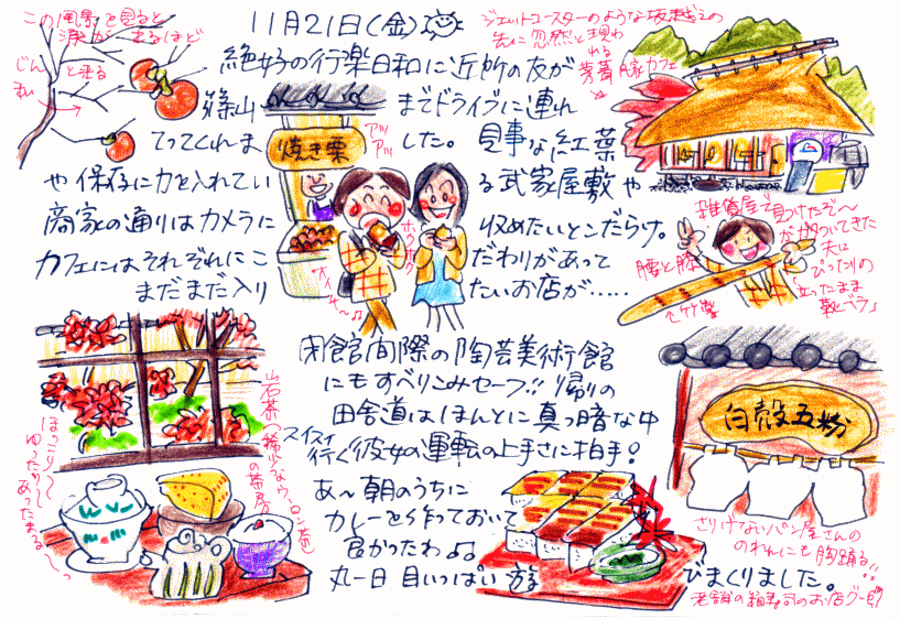 11月21日(金)
絶好の行楽日和に近所の友が
篠山までドライブに連れ
てってくれました。見事な紅葉
や保存に力を入れている武家屋敷や
商家の通りはカメラに収めたいとこだらけ。
カフェにはそれぞれにこだわりがあって
まだまだ入りたいお店が.....
閉館間際の陶芸美術館
にもすべりこみセーフ!!帰りの
田舎道はほんとに真っ暗な中
スイスイ行く彼女の運転の上手さに拍手!
あ〜朝のうちに
カレーを作っておいて
良かったわ♪♪
丸一日目いっぱい遊びまくりました。
この風景を見ると
涙が出るほど
じんと来る
私
焼き栗
アツアツ
ホクホク
ジェットコースターのような坂越えの
先に忽然と現われる
茅葺民家カフェ
雑貨屋で見つけたぞ〜
腰と膝がガタついてきた
夫にぴったりの
「立ったまま靴ベラ」
竹製
岩茶(稀少なウーロン茶)の茶房
ほっこり〜
ゆったり〜
あったまる〜っ
白殻五粉
さりげないパン屋さんの
のれんにも胸踊る!!
老舗の箱寿司のお店グー